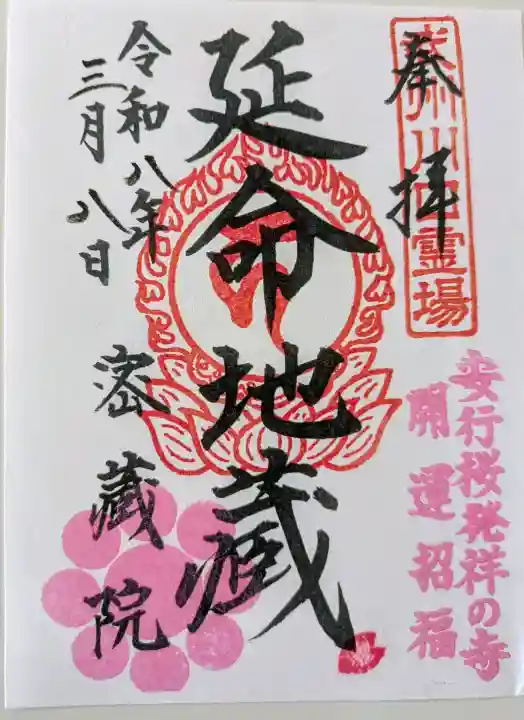 奉拝
武州川口霊場
安行桜発祥の寺
開運招福
延命地蔵
令和八年
三月八日
密蔵院